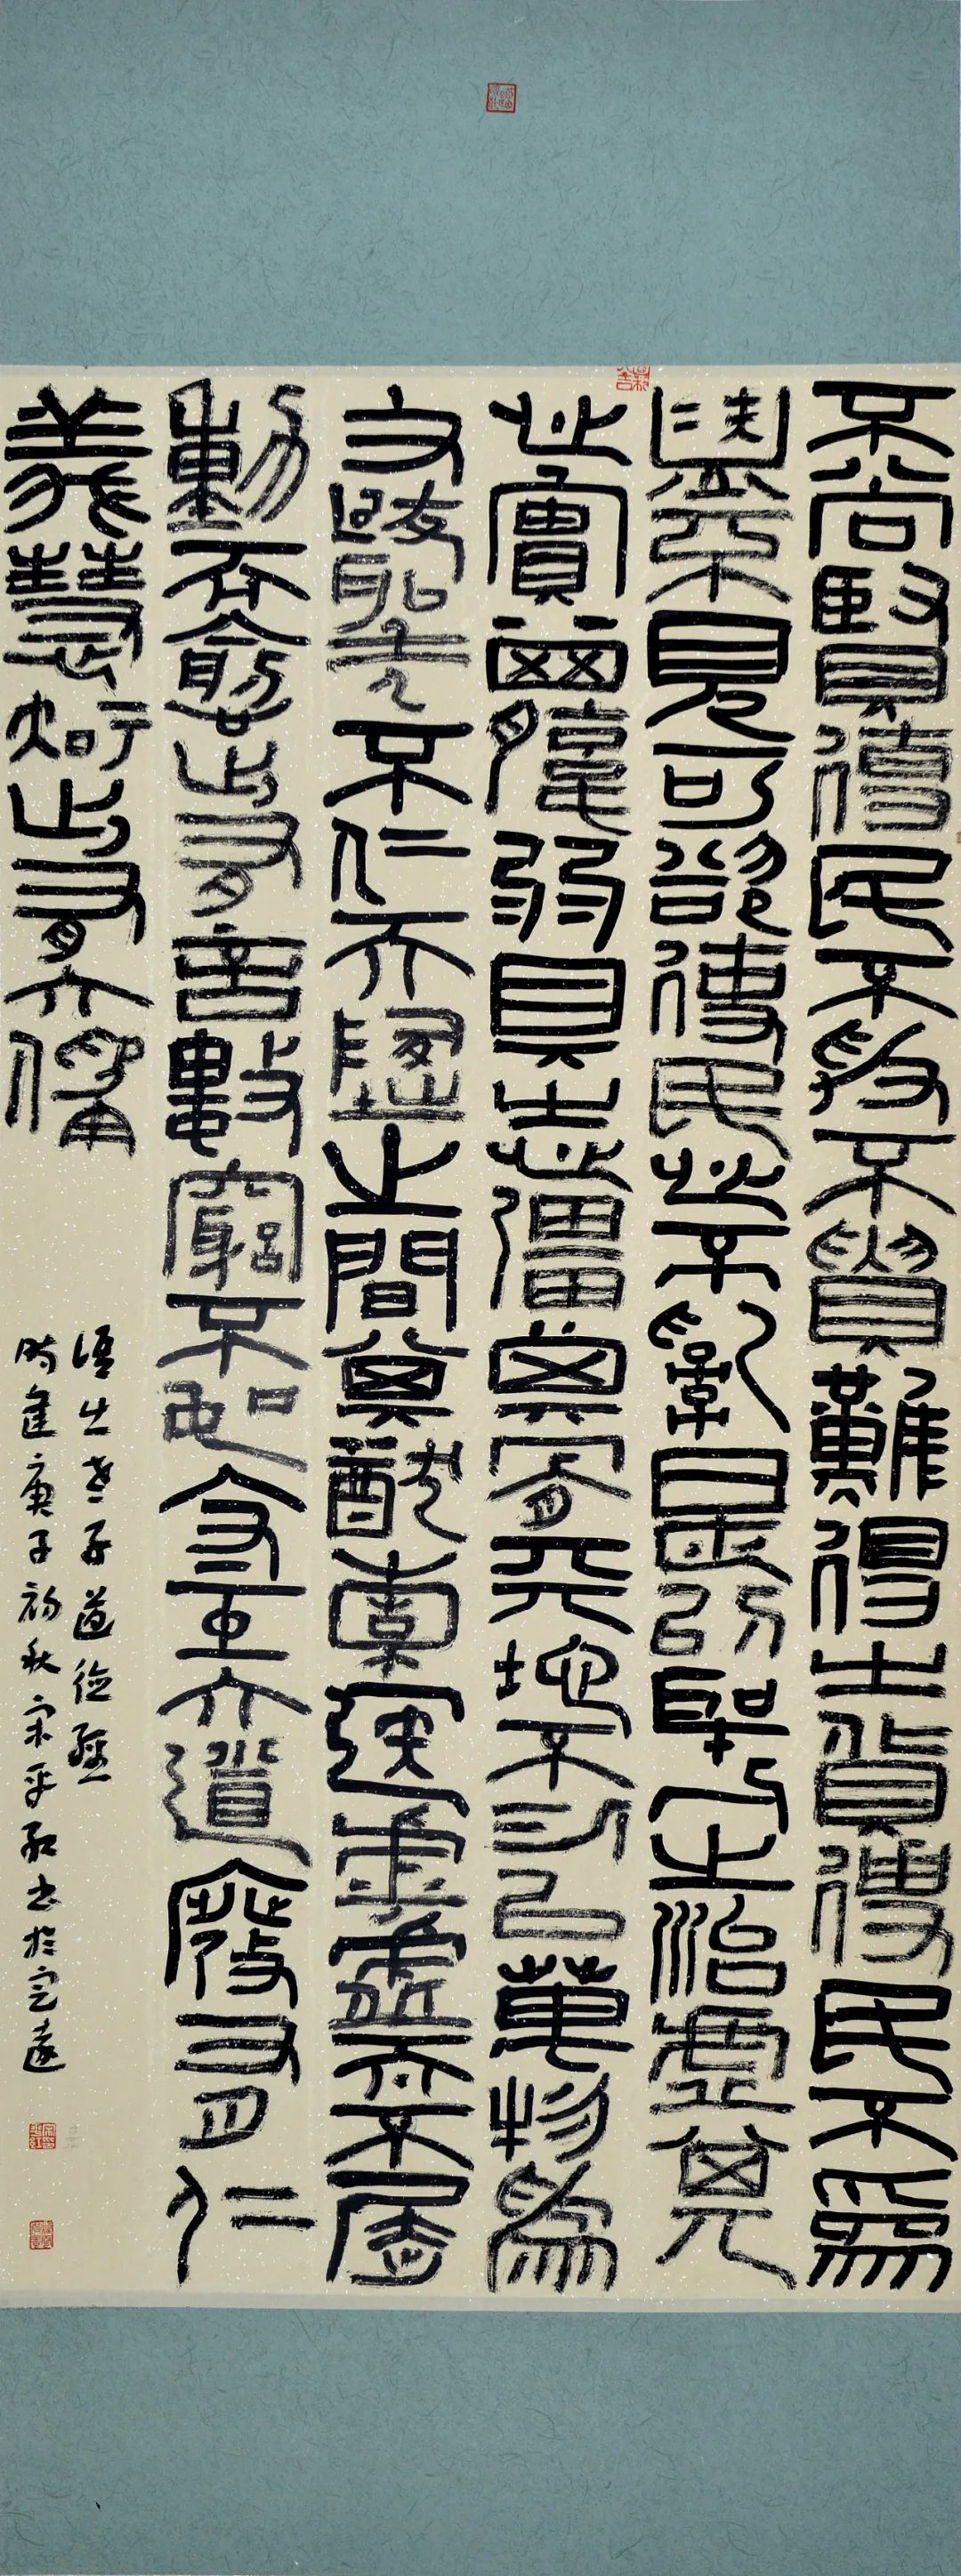 不尚賢使民不爭不貴難得之貨使民不為
盜不見可欲使民心不亂是以聖人之治虛其
心實其腹弱其志彊其骨天地不仁以萬物為
芻狗聖人不仁天地之間其猶橐籥虛而不屈
動而愈出多言數窮不如守中大道廢有仁
義慧智出有大偽
語出老子道德經
時逢庚子初秋宋平紅書於定遠